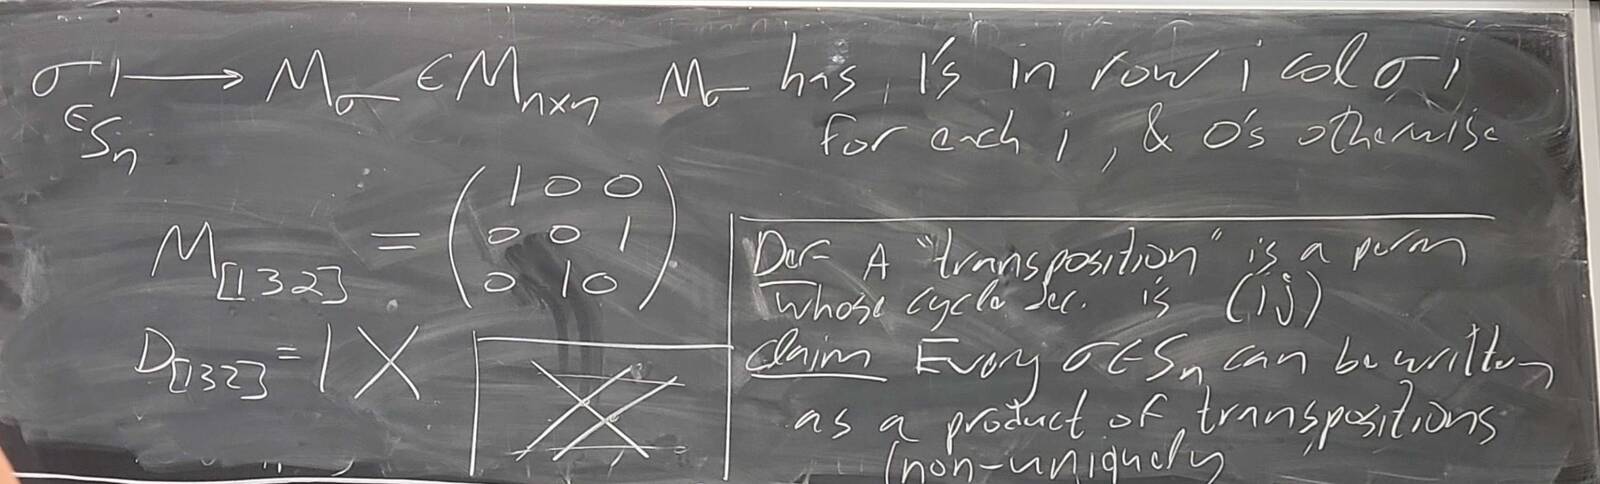 σ ⟼ M_σ ∈ M_{n×n} M_σ has 1's in row i col σ i
∈ S_n for each i, & 0's otherwise
M_{[132]} = ( 1 0 0
0 0 1
0 1 0 )
D_{[132]} = | X
Def A "transposition" is a perm
whose cycle dec. is (ij)
Claim Every σ ∈ S_n can be written
as a product of transpositions
(non-uniquely